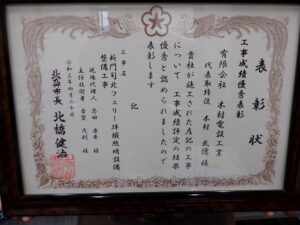 表彰状
工事成績優秀表彰
有限会社 木村電設工業
代表取締役 木村 武徳 様
貴社が施工された左記の工事
について 工事成績評定の結果
優秀と認められましたので
表彰します
記
工事名
新門司北フェリー埠頭照明設備
整備工事
現場代理人
主任技術者
令和三年 月二十日
北九州市長 北橋健治